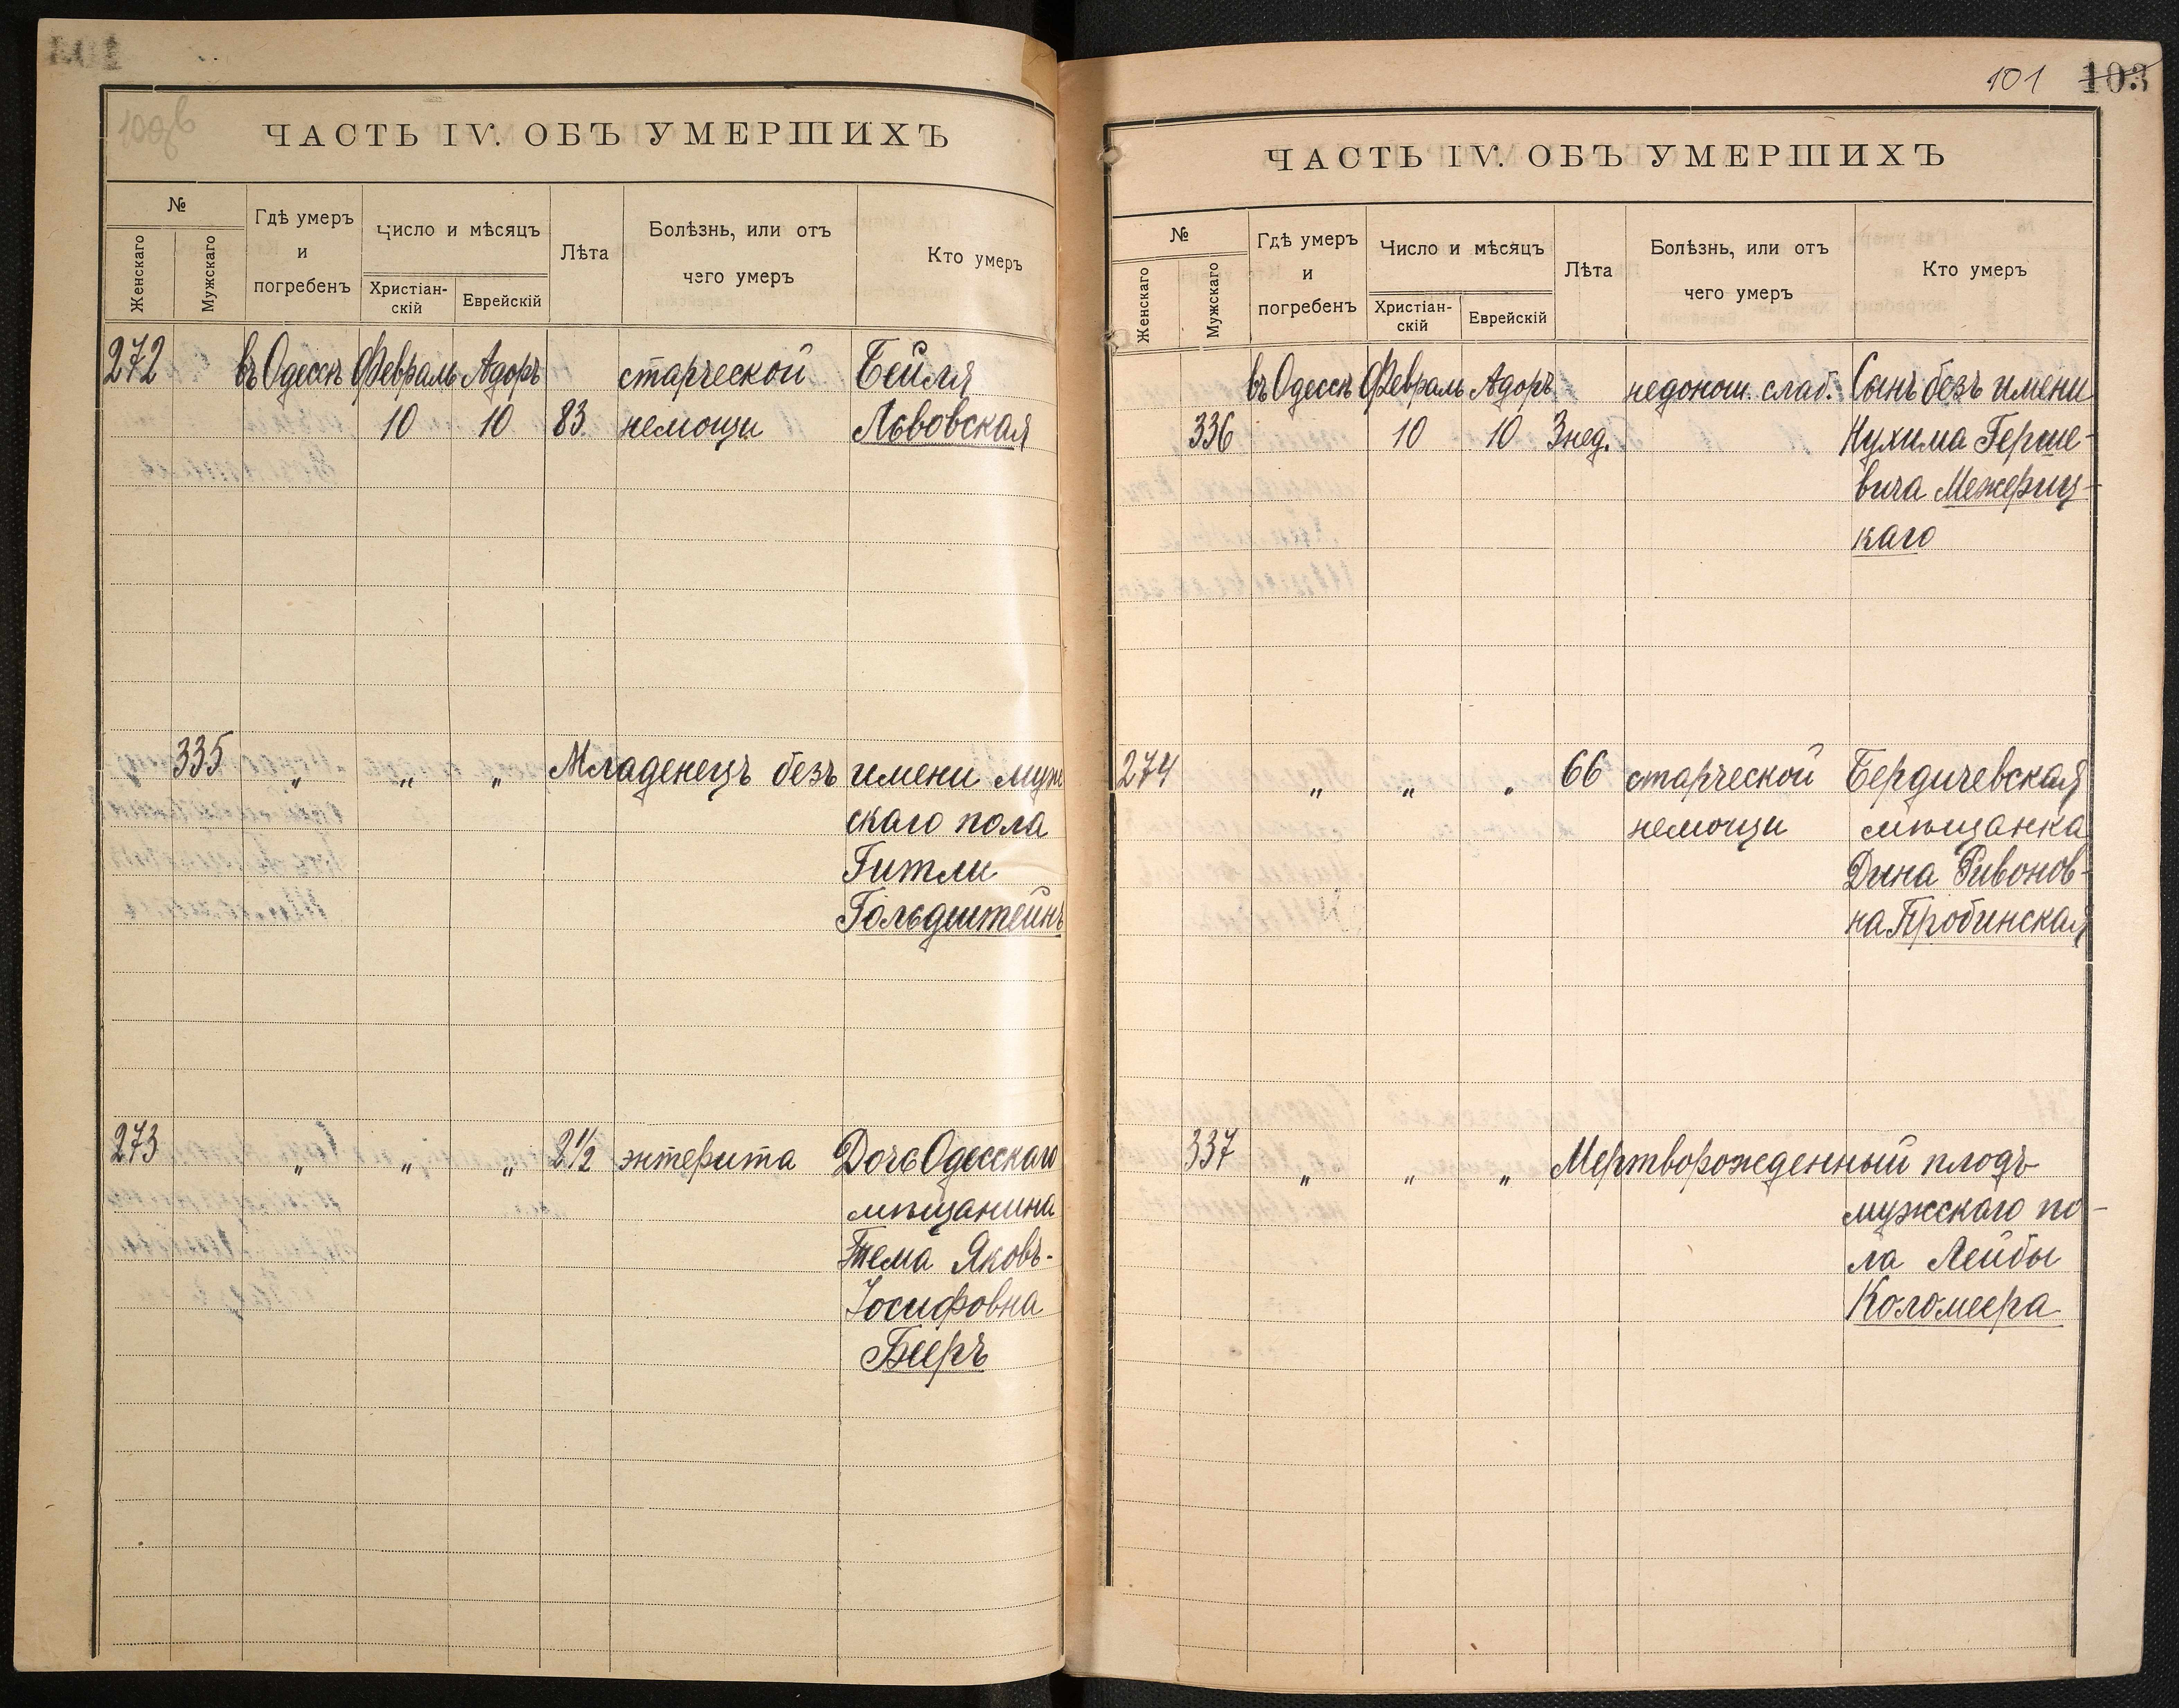 ЧАСТЬ IV. ОБЪ УМЕРШИХЪ
№
Женскаго
Мужскаго
Гдѣ умеръ
и
погребенъ
Число и мѣсяцъ
Христіан-
скій
Еврейскій
Лѣта
Болѣзнь, или отъ
чего умеръ
Кто умеръ
272 въ Одессѣ Февраль Адоръ старческой Бейля
10 10 83 немощи Львовская
335 „ „ „ Младенецъ безъ имени муж
скаго пола
Гитли
Гольдштейнъ
273 „ „ „ 2½ энтерита Дочь Одесскаго
мѣщанина
Тема Яковъ-
Іосифовна
Бееръ
101 103
ЧАСТЬ IV. ОБЪ УМЕРШИХЪ
№
Женскаго
Мужскаго
Гдѣ умеръ
и
погребенъ
Число и мѣсяцъ
Христіан-
скій
Еврейскій
Лѣта
Болѣзнь, или отъ
чего умеръ
Кто умеръ
въ Одессѣ Февраль Адоръ недонош. слаб. Сынъ безъ имени
336 10 10 3 нед. Нухима Герше-
вича Межериц-
каго
274 „ „ „ 66 старческой Бердичевская
немощи мѣщанка
Дина Ривонов-
на Пробинская
337 „ „ „ Мертворожденный плодъ
мужскаго по-
ла Лейбы
Коломеера